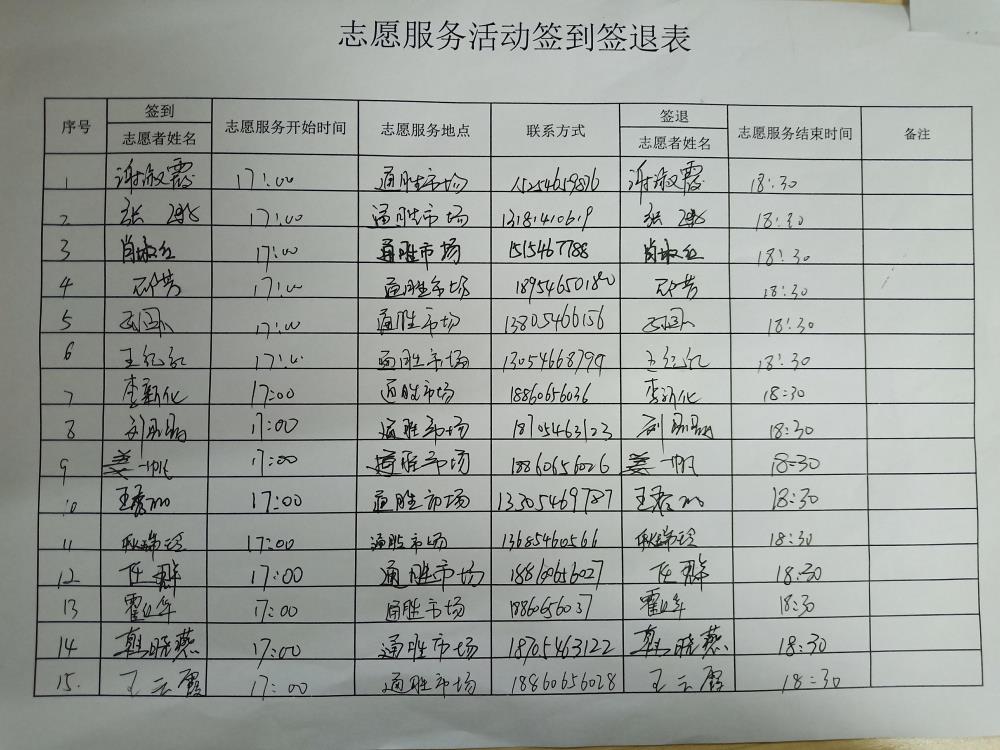 志愿服务活动签到签退表
序号 签到 志愿者姓名 志愿服务开始时间 志愿服务地点 联系方式 签退 志愿者姓名 志愿服务结束时间 备注
1 谢淑霞 17:00 通胜市场 15254659876 谢淑霞 18:30
2 张 17:00 通胜市场 13181410619 张 18:30
3 肖淑红 17:00 通胜市场 1515467788 肖淑红 18:30
4 17:00 通胜市场 18954650180 18:30
5 17:00 通胜市场 13805466156 18:30
6 王纪红 17:00 通胜市场 13054668799 王纪红 18:30
7 李新化 17:00 通胜市场 18860656036 李新化 18:30
8 刘 17:00 通胜市场 18705463123 刘 18:30
9 姜一帆 17:00 通胜市场 18860656026 姜一帆 18:30
10 王 17:00 通胜市场 13305469787 王 18:30
11 耿瑞玲 17:00 通胜市场 13685460566 耿瑞玲 18:30
12 任群 17:00 通胜市场 18860656027 任群 18:30
13 17:00 通胜市场 1886065037 18:30
14 韩晓燕 17:00 通胜市场 18705463122 韩晓燕 18:30
15. 王云霞 17:00 通胜市场 18860656028 王云霞 18:30